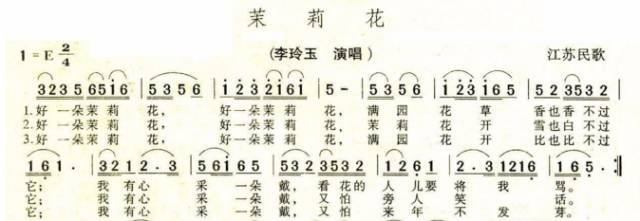 茉莉花
1=E 2/4 (李玲玉 演唱) 江苏民歌
3235 6516 | 5356 | 1232 161 | 5 - | 5356 | 123 165 | 5 2 3532
1.好一朵茉莉花, 好一朵茉莉花, 满园花草 香也香不过
2.好一朵茉莉花, 好一朵茉莉花, 茉莉花开 雪也白不过
3.好一朵茉莉花, 好一朵茉莉花, 满园花开 比也比不过
161· | 3 2 1 2·3 | 5 6 1 6 5 | 5 2 3532 | 1 2 6 1 | 2·3 1216 | 1 6 5·
它; 我有心采一朵戴, 看花的人儿要将我骂。
它; 我有心采一朵戴, 又怕旁人笑话。
它; 我有心采一朵戴, 又怕来年不发芽